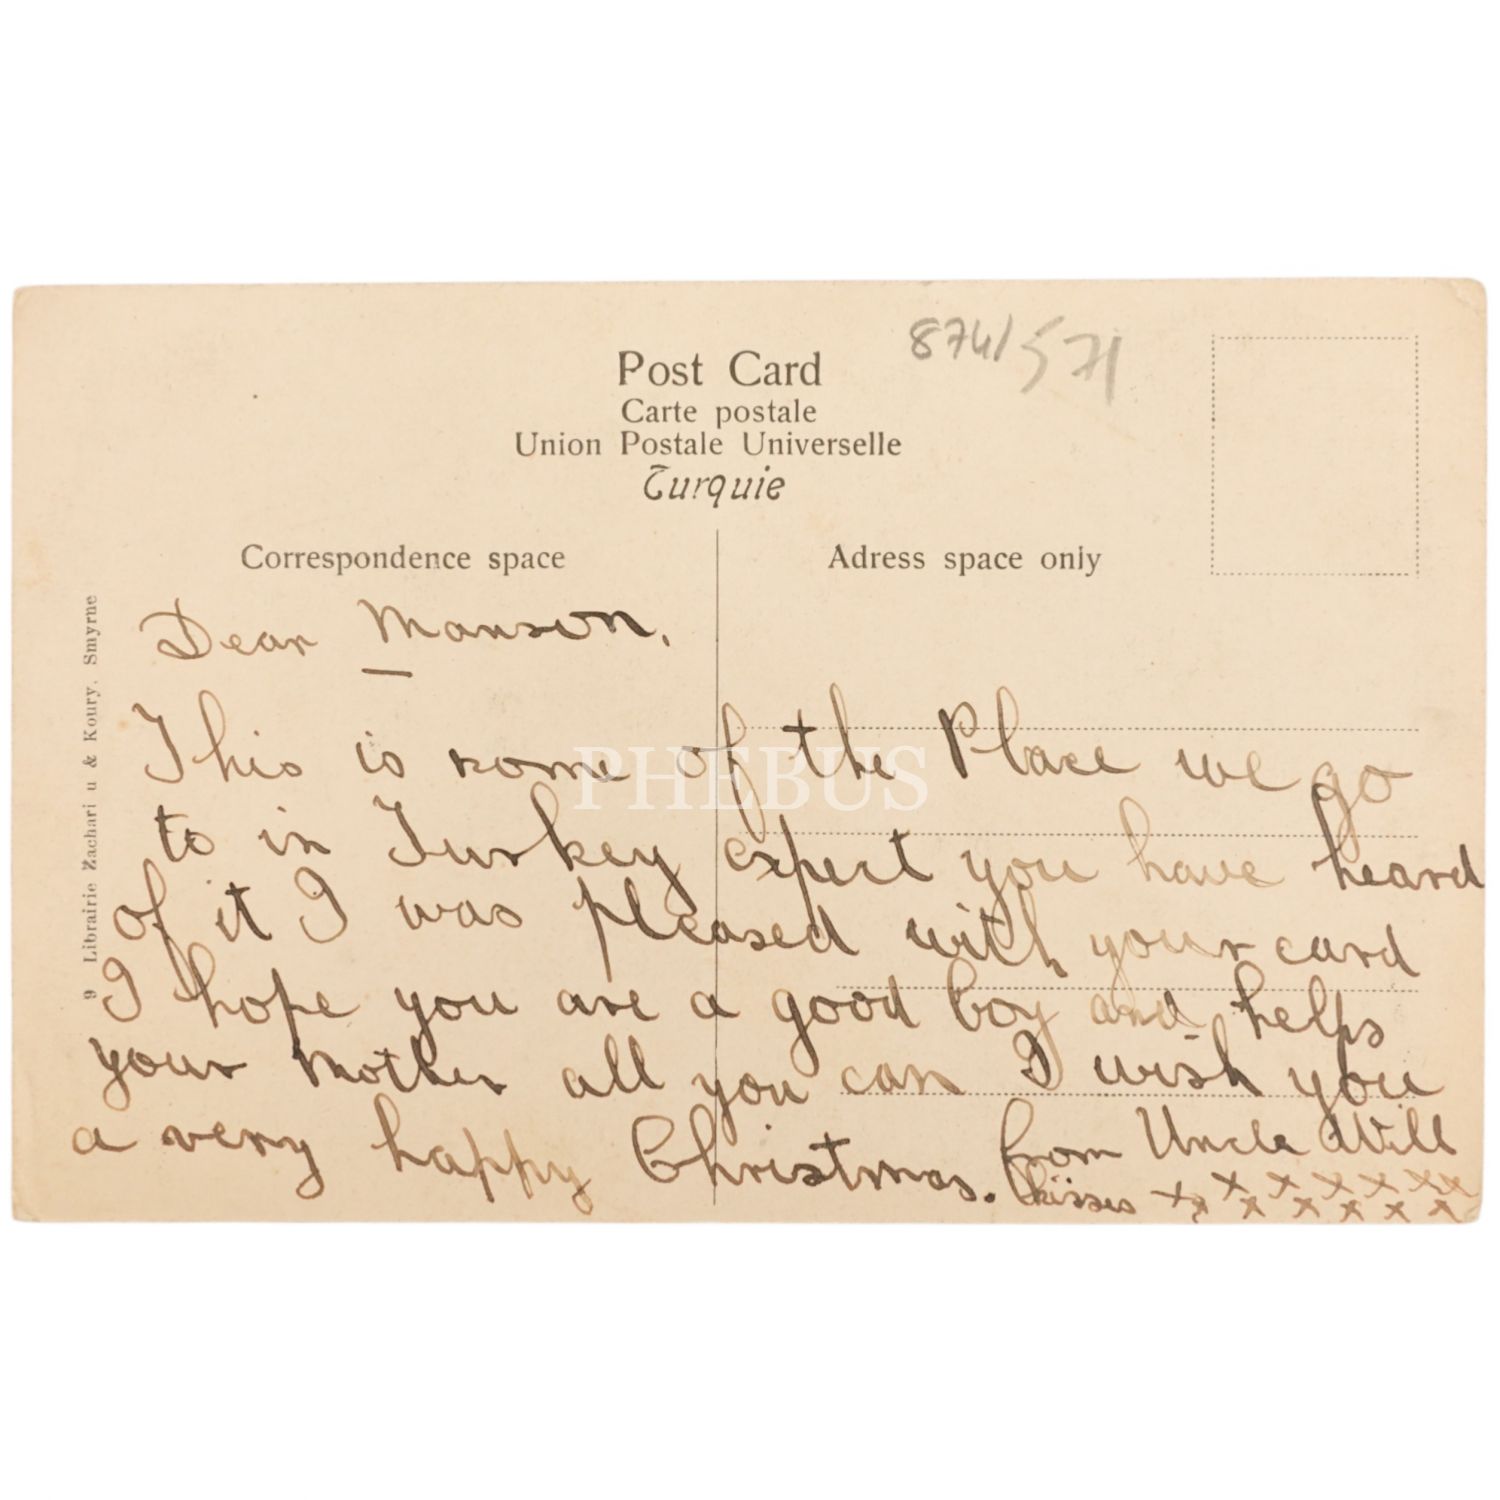 874/571
Post Card
Carte postale
Union Postale Universelle
Turquie
Correspondence space
Adress space only
9 Librairie Zachari u & Koury, Smyrne
Dear Manson,
This is some of the Place we go
to in Turkey expect you have heard
of it I was pleased with your card
I hope you are a good boy and helps
your mother all you can I wish you
a very happy Christmas. from Uncle Will
Kisses x x x x x x x
x x x x x x
PHEBUS